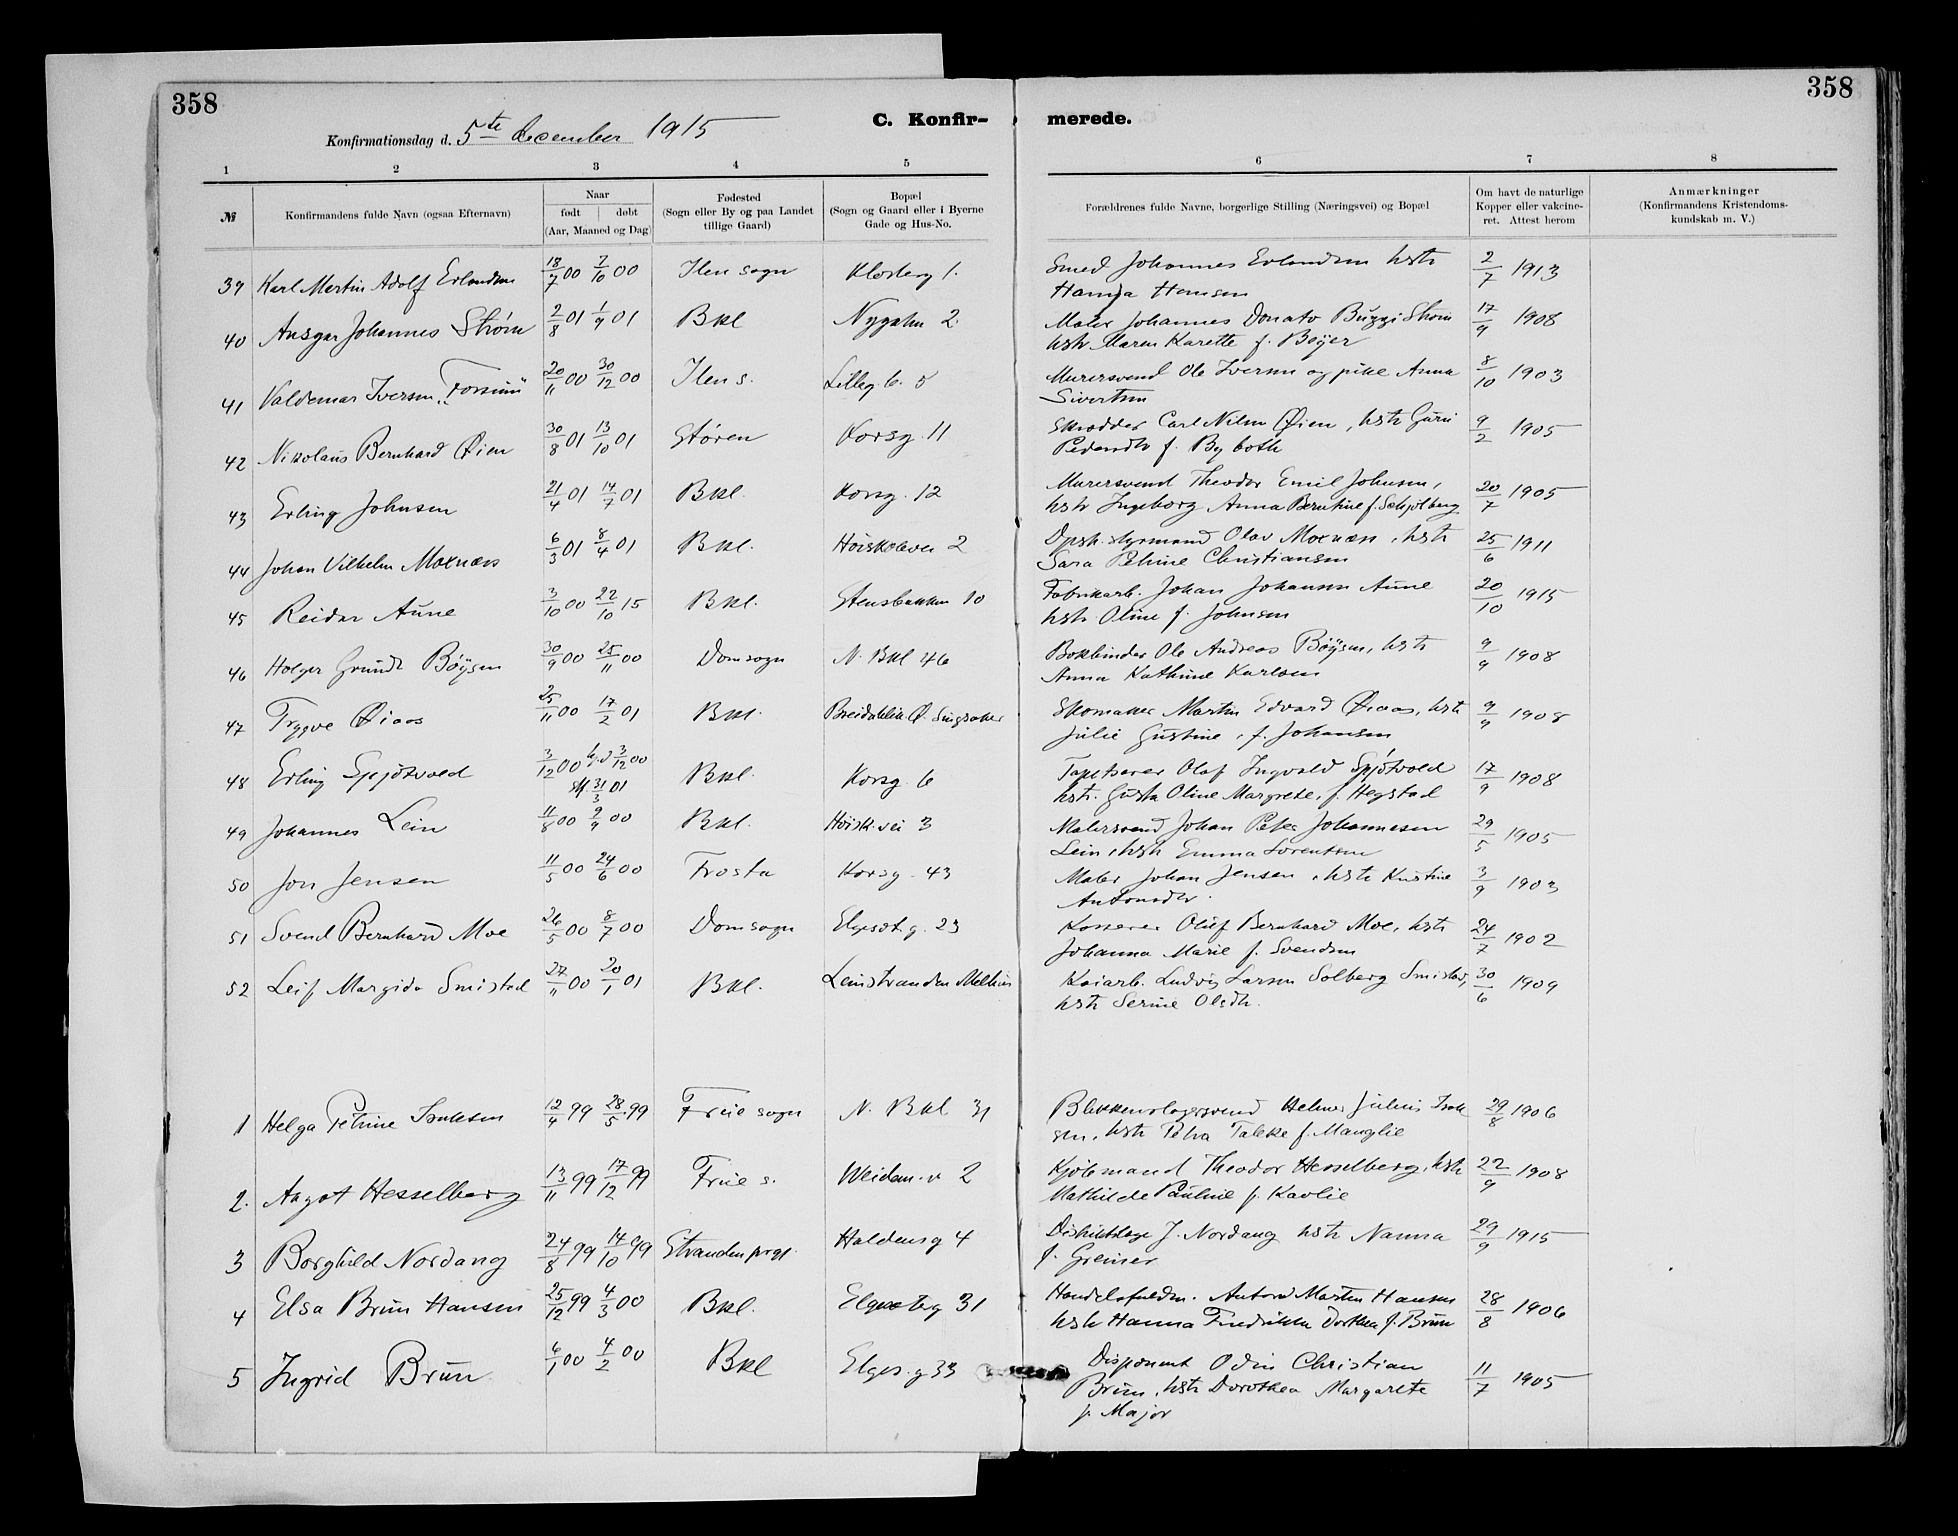 358
358
Konfirmationsdag d. 5te december 1915
C. Konfir-
merede.
1 2 3 4 5 6 7 8
№ Konfirmandens fulde Navn (ogsaa Efternavn) Naar født døbt (Aar, Maaned og Dag) Fødested (Sogn eller By og paa Landet tillige Gaard) Bopæl (Sogn og Gaard eller i Byerne Gade og Hus-No. Forældrenes fulde Navne, borgerlige Stilling (Næringsvei) og Bopæl Om havt de naturlige Kopper eller vakcineret. Attest herom Anmærkninger (Konfirmandens Kristendomskundskab m. V.)
39 Karl Martin Adolf Erlandsen 18/7 00 7/10 00 Ilen sogn Klosterg 1. Smed Johannes Erlandsen hstr 2/7 1913
Hansen
40 Ansgar Johannes Strøm 2/8 01 1/9 01 Bkl Nygatn 2. Maler Johannes Donato Buggi Strøm 17/9 1908
hstr Maren Karette f. Beyer
41 Valdemar Iversen "Forsmii" 20/11 00 30/12 00 Ilen s. Lilleg 6. 5 Murersvend Ole Iversen og pike Anna 8/10 1903
Sivertsen
42 Nikolaus Bernhard Øien 30/8 01 13/10 01 Støren Korsg. 11 Skrædder Carl Nilsen Øien, hstr Guru 9/2 1905
Pedersdtr f. Bybotn
43 Erling Johnsen 21/4 01 14/7 01 Bkl. Korsg. 12 Murersvend Theodor Emil Johnsen, 20/7 1905
hstr Ingeborg Anna Berntine f. Schjølberg
44 Johan Vilhelm Moxnæss 6/3 01 8/4 01 Bkl. Høiskolevei 2 Dpsk. styrmand Olav Moxnæss, hstr 25/6 1911
Sara Petrine Christiansen
45 Reidar Aune 3/10 00 22/10 15 Bkl. Stensbakken 10 Fabrikarb. Johan Johansen Aune 20/10 1915
hstr Oline f. Johnsen
46 Holger Grundt Bøysen 30/9 00 25/11 00 Domsogn N. Bkl 46 Bokbinder Ole Andreas Bøysen, hstr 9/9 1908
Anna Kathrine Karlsen
47 Trygve Øiaas 25/11 00 17/2 01 Bkl. Breidablik Ø. Singsaker Skomaker Martin Edvard Øiaas, hstr 9/9 1908
Julie Gustine, f. Johansen
48 Erling Spjøtvold 3/12 00 hj.d 3/12 00 Bkl. Korsg. 6 Tapetserer Olaf Ingvald Spjøtvold 17/9 1908
st 31/3 01 hstr. Gusta Oline Margrete, f. Hegstad
49 Johannes Lein 11/8 00 9/9 00 Bkl. Høisk.vei 3 Malersvend Johan Peter Johannesen 29/5 1905
Lein, hstr Emma Lorentsen
50 Jon Jensen 11/5 00 24/6 00 Frosta Korsg. 43 Maler Johan Jensen, hstr Kristine 3/9 1903
Antonsdtr.
51 Svend Bernhard Moe 26/5 00 8/7 00 Domsogn Elgesæt.g. 23 Kasserer Oluf Bernhard Moe, hstr 24/7 1902
Johanna Marie f. Svendsen
52 Leif Margido Smistad 27/11 00 20/1 01 Bkl. Leinstranden Melhus Kaiarb. Ludvig Larsen Solberg Smistad, 30/6 1909
hstr Serine Olsdtr.
1 Helga Petrine Isaksen 12/4 99 28/5 99 Frue sogn N. Bkl 31 Blikkenslagersvend Helmer Julius Isak 29/8 1906
sen, hstr Petra Talette f. Manglie
2. Aagot Hesselberg 13/11 99 17/12 99 Frue s. Weidem. v 2 Kjøbmand Theodor Hesselberg, hstr 22/9 1908
Mathilde Pauline f. Kavlie
3 Borghild Nordang 24/8 99 14/10 99 Stranden prgj. Haldensg 4 Distriktslæge J. Nordang hstr Nanna 29/9 1915
f. Greiner
4 Elsa Brun Hansen 25/12 99 4/3 00 Bkl. Elgesæterg 31 Handelsfuldm. Anton Martin Hansen 28/8 1906
hstr Hanna Fredrikka Dorthea f. Brun
5 Ingrid Brun 6/1 00 4/2 00 Bkl Elges. g 33 Disponent Odin Christian 11/7 1905
Brun, hstr Dorothea Margarete
f. Major